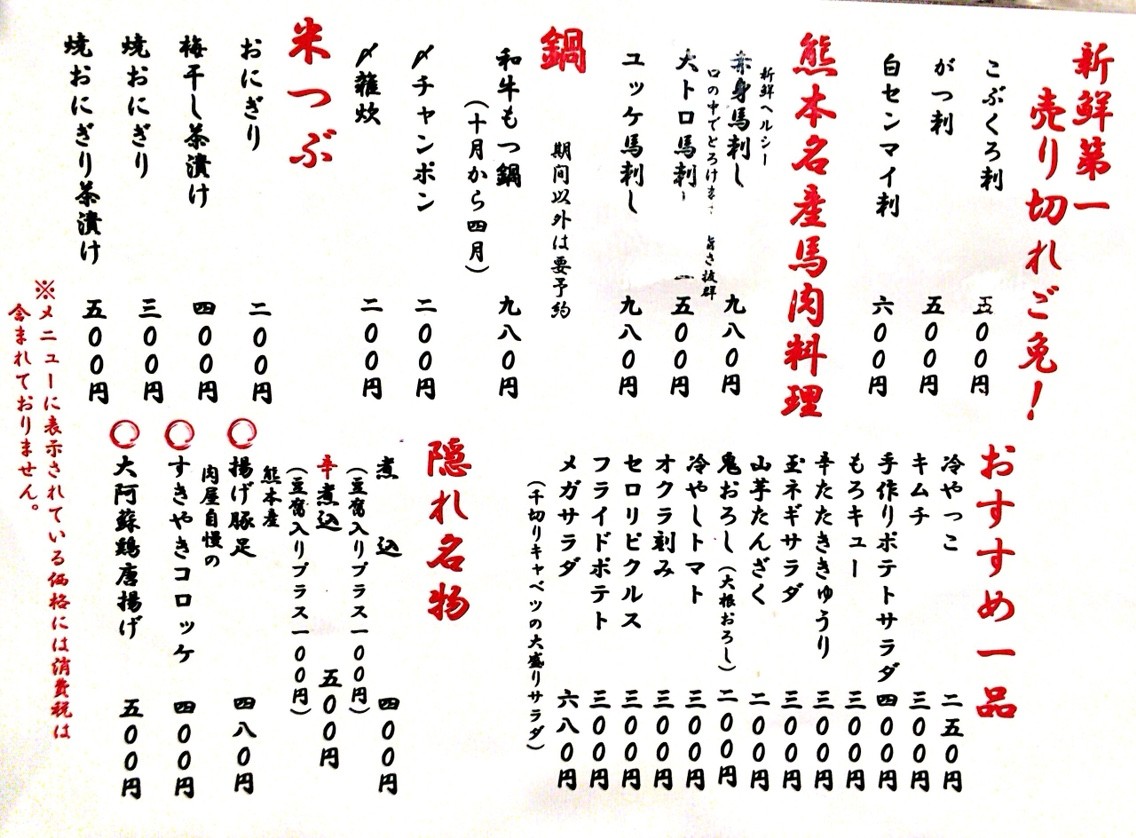 新鮮第一
売り切れご免!
こぶくろ刺 五〇〇円
がつ刺 五〇〇円
白センマイ刺 六〇〇円
熊本名産馬肉料理
新鮮ヘルシー
赤身馬刺し 九八〇円
口の中でとろけます 旨さ抜群
大トロ馬刺し 一五〇〇円
ユッケ馬刺し 九八〇円
鍋
期间以外は要予約
和牛もつ鍋 九八〇円
(十月から四月)
〆チャンポン 二〇〇円
〆雑炊 二〇〇円
米つぶ
おにぎり 二〇〇円
梅干し茶漬け 四〇〇円
焼おにぎり 三〇〇円
焼おにぎり茶漬け 五〇〇円
おすすめ一品
冷やっこ 二五〇円
キムチ 三〇〇円
手作りポテトサラダ 四〇〇円
もろキュー 三〇〇円
辛たたききゅうり 三〇〇円
玉ネギサラダ 三〇〇円
山芋たんざく 二〇〇円
鬼おろし(大根おろし) 二〇〇円
冷やしトマト 三〇〇円
オクラ刻み 三〇〇円
セロリピクルス 三〇〇円
フライドポテト 三〇〇円
メガサラダ 六八〇円
(千切りキャベツの大盛りサラダ)
隠れ名物
煮込 四〇〇円
(豆腐入りプラス一〇〇円)
辛煮込 五〇〇円
(豆腐入りプラス一〇〇円)
熊本産
○揚げ豚足 四八〇円
肉屋自慢の
○すきやきコロッケ 四〇〇円
○大阿蘇鶏唐揚げ 五〇〇円
※メニューに表示されている価格には消費税は
含まれておりません。